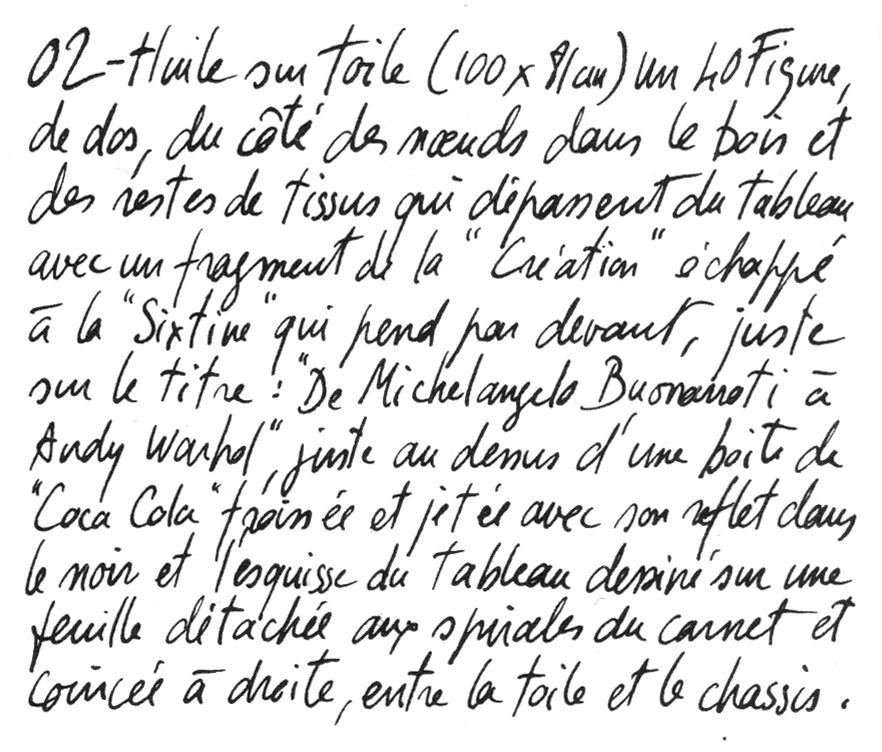 02-Huile sur toile (100 x 81cm) un 40 Figure,
de dos, du côté des nœuds dans le bois et
des restes de tissus qui dépassent du tableau
avec un fragment de la "Création" échappé
à la "Sixtine" qui pend par devant, juste
sur le titre : "De Michelangelo Buonarroti à
Andy Warhol", juste au dessus d'une boite de
"Coca Cola" froissée et jetée avec son reflet dans
le noir et l'esquisse du tableau dessiné sur une
feuille détachée aux spirales du carnet et
coincée à droite, entre la toile et le chassis.